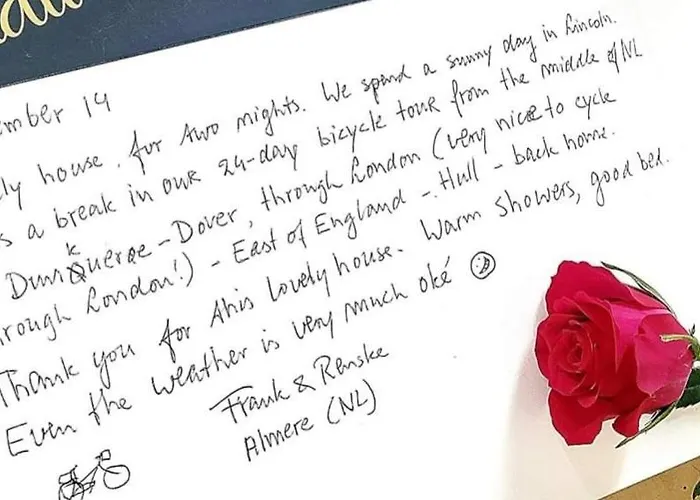 ember 14
ly house. for two nights. We spend a sunny day in Lincoln.
s a break in our 24-day bicycle tour from the middle of NL
Dunkuerqe - Dover, through London (very nice to cycle
rough London!) - East of England - Hull - back home.
Thank you for this lovely house. Warm showers, good bed.
Even the weather is very much oké
Frank & Renske
Almere (NL)